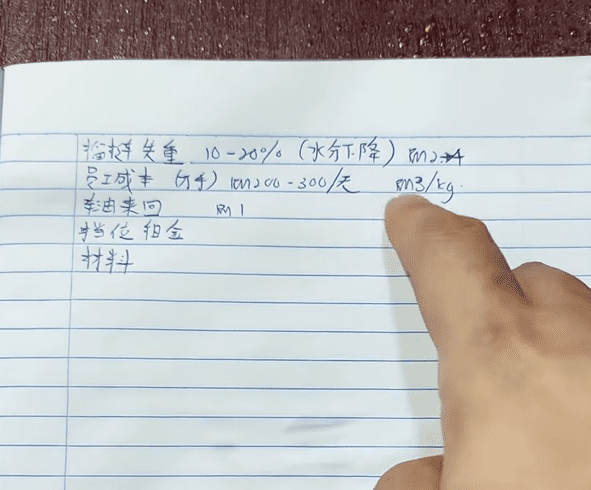 榴梿失重 10-20% (水分下降) RM2-4
员工成本 (万手) RM200-300/天 RM3/kg.
车油来回 RM1
档位租金
材料